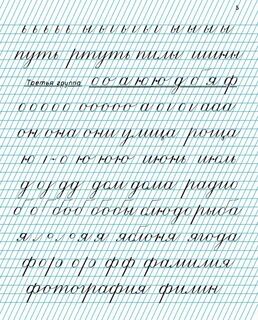 5
ь ь ь ь ы ы ы ы ы ы ы ы ы
путь ртуть пилы шины
Третья группа с о а ю ю д б я ф
с с с с с о о о о о а с ı с ı а а а
он она они улица роща
ю ı-о ю ю ю июнь июль
д оз д д дом дома радио
о б о б о бобы блюдо рыба
я я я яблоня ягода
фор ор ф ф фамилия
фотография филин